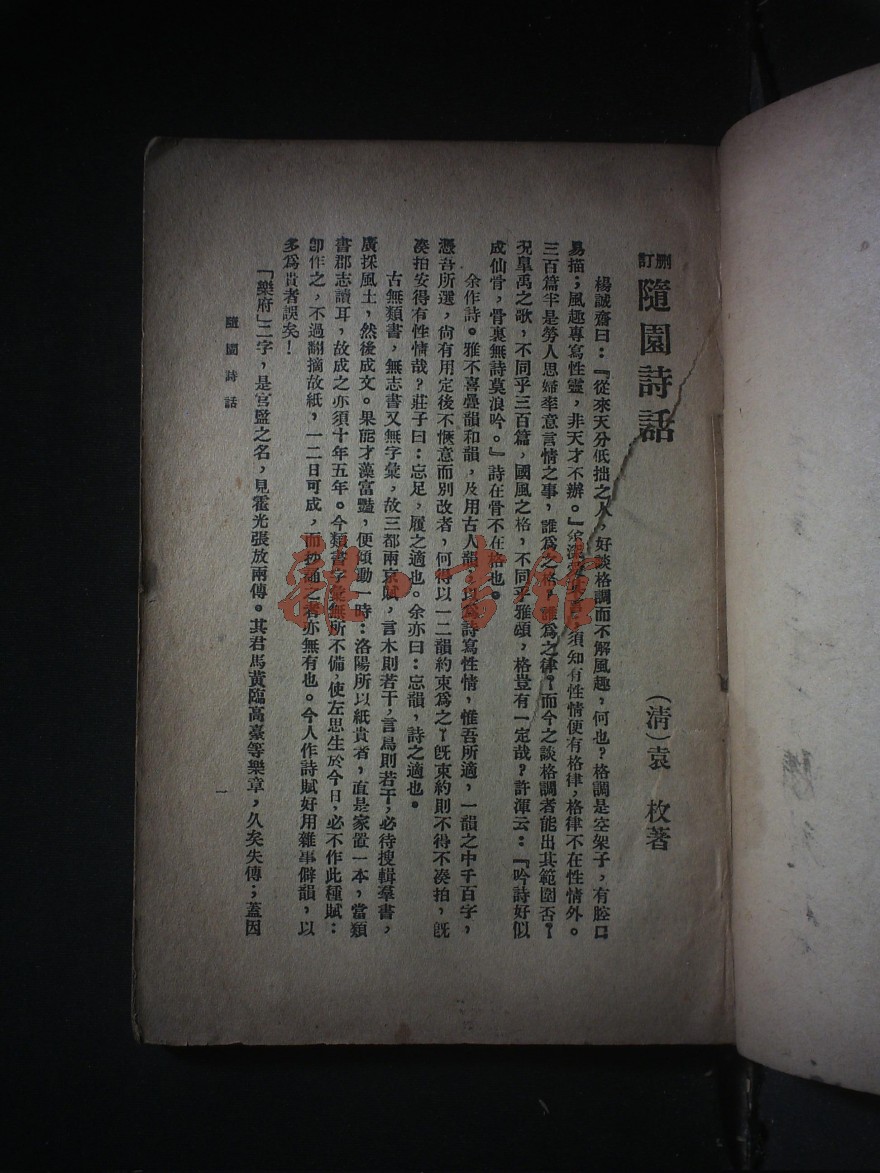 刪訂
隨園詩話
(清)袁 枚著
楊誠齋曰:『從來天分低拙之人,好談格調而不解風趣,何也?格調是空架子,有腔口
易描;風趣專寫性靈,非天才不辦。』余深愛其言,須知有性情便有格律,格律不在性情外。
三百篇半是勞人思婦率意言情之事,誰爲之格,誰爲之律?而今之談格調者能出其範圍否?
况臯禹之歌,不同乎三百篇,國風之格,不同乎雅頌,格豈有一定哉?許渾云:『吟詩好似
成仙骨,骨裏無詩莫浪吟。』詩在骨不在格也。
余作詩。雅不喜疊韻和韻,及用古人韻,以爲詩寫性情,惟吾所適,一韻之中千百字,
憑吾所選,尙有用定後不愜意而別改者,何得以一二韻約束爲之?旣束約則不得不凑拍,旣
凑拍安得有性情哉?莊子曰:忘足,履之適也。余亦曰:忘韻,詩之適也。
古無類書,無志書又無字彙,故三都兩京賦,言木則若干,言鳥則若干,必待搜輯羣書,
廣採風土,然後成文。果能才藻富豔,便傾動一時:洛陽所以紙貴者,直是家置一本,當類
書郡志讀耳,故成之亦須十年五年。今類書字彙無所不備,使左思生於今日,必不作此種賦:
卽作之,不過翻摘故紙,一二日可成,而抄誦之者亦無有也。今人作詩賦好用雜事僻韻,以
多爲貴者誤矣!
「樂府」二字,是官監之名,見霍光張放兩傳。其君馬黃臨高臺等樂章,久矣失傳;蓋因
隨園詩話
一
龍·書館